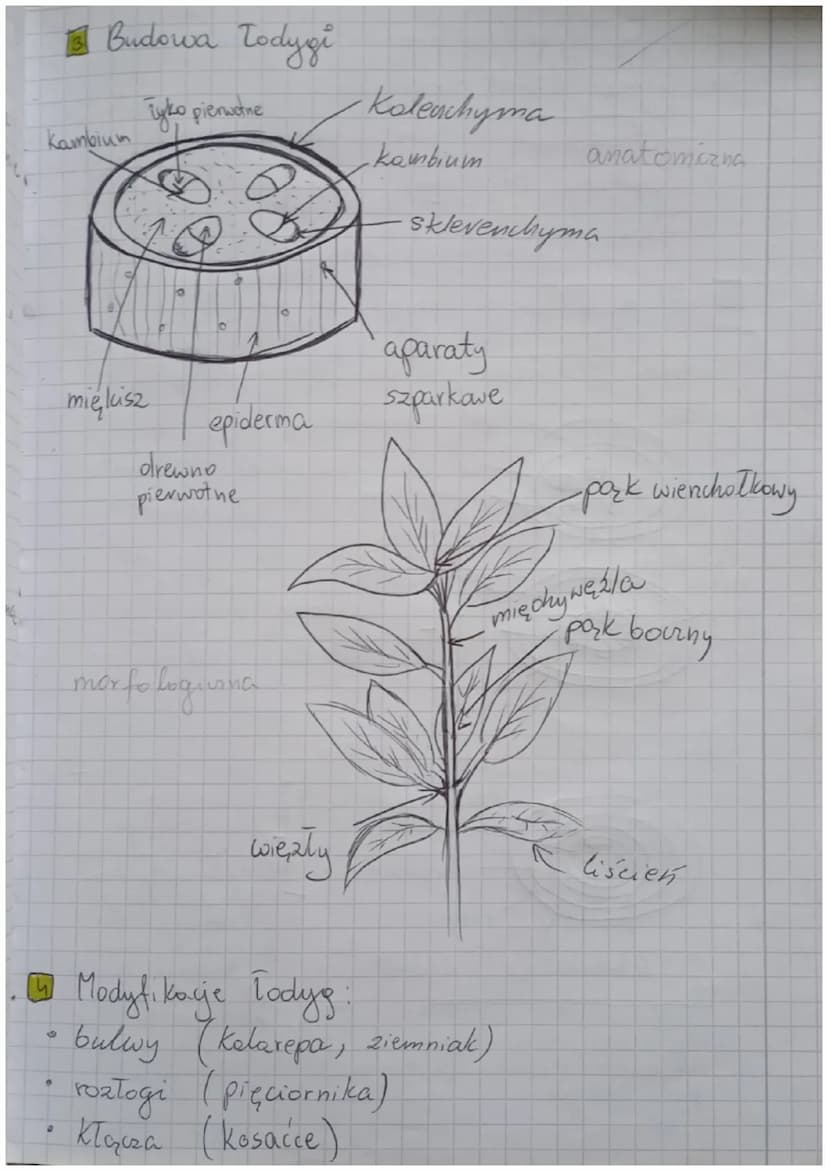 3 Budowa łodygi
łyko pierwotne
kolenchyma
kambium
kambium
anatomiczna
sklerenchyma
aparaty
szparkowe
miękisz
epiderma
drewno
pierwotne
pąk wierzchołkowy
międzywęźla
pąk boczny
morfologiczna
więzły
liścień
4 Modyfikacje łodyg:
• bulwy (kalarepa, ziemniak)
• rozłogi (pięciornika)
• kłącza (kosaćce)